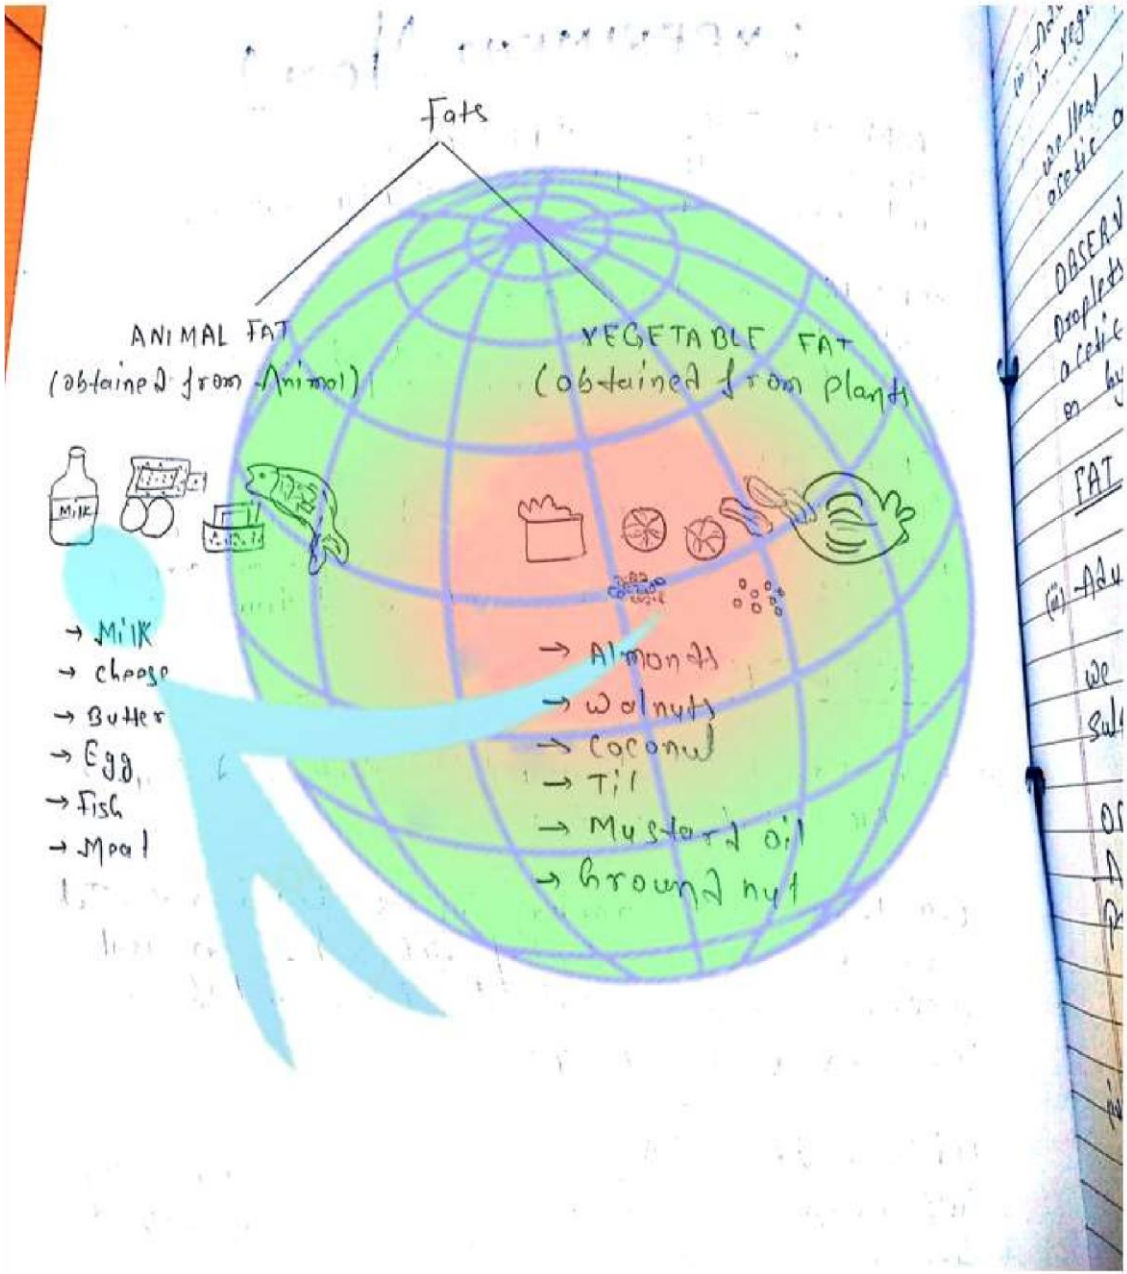 Fats
ANIMAL FAT
(obtained from Animal)
Milk
→ Milk
→ cheese
→ Butter
→ Egg
→ Fish
→ Meat
VEGETABLE FAT
(obtained from plants
→ Almonds
→ walnuts
→ coconut
→ Til
→ Mustard oil
→ Ground nut
in vege
we Heat
acetic a
OBSERV
Droplets
acetic
on by
FAT
(ii) Adu
we